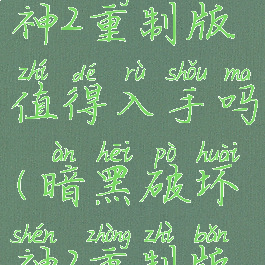 神2重制版
zhí dé rù shǒu ma
值得入手吗
àn hēi pò huài
(暗黑破坏
shén zhòng zhì bǎn
神2重制版